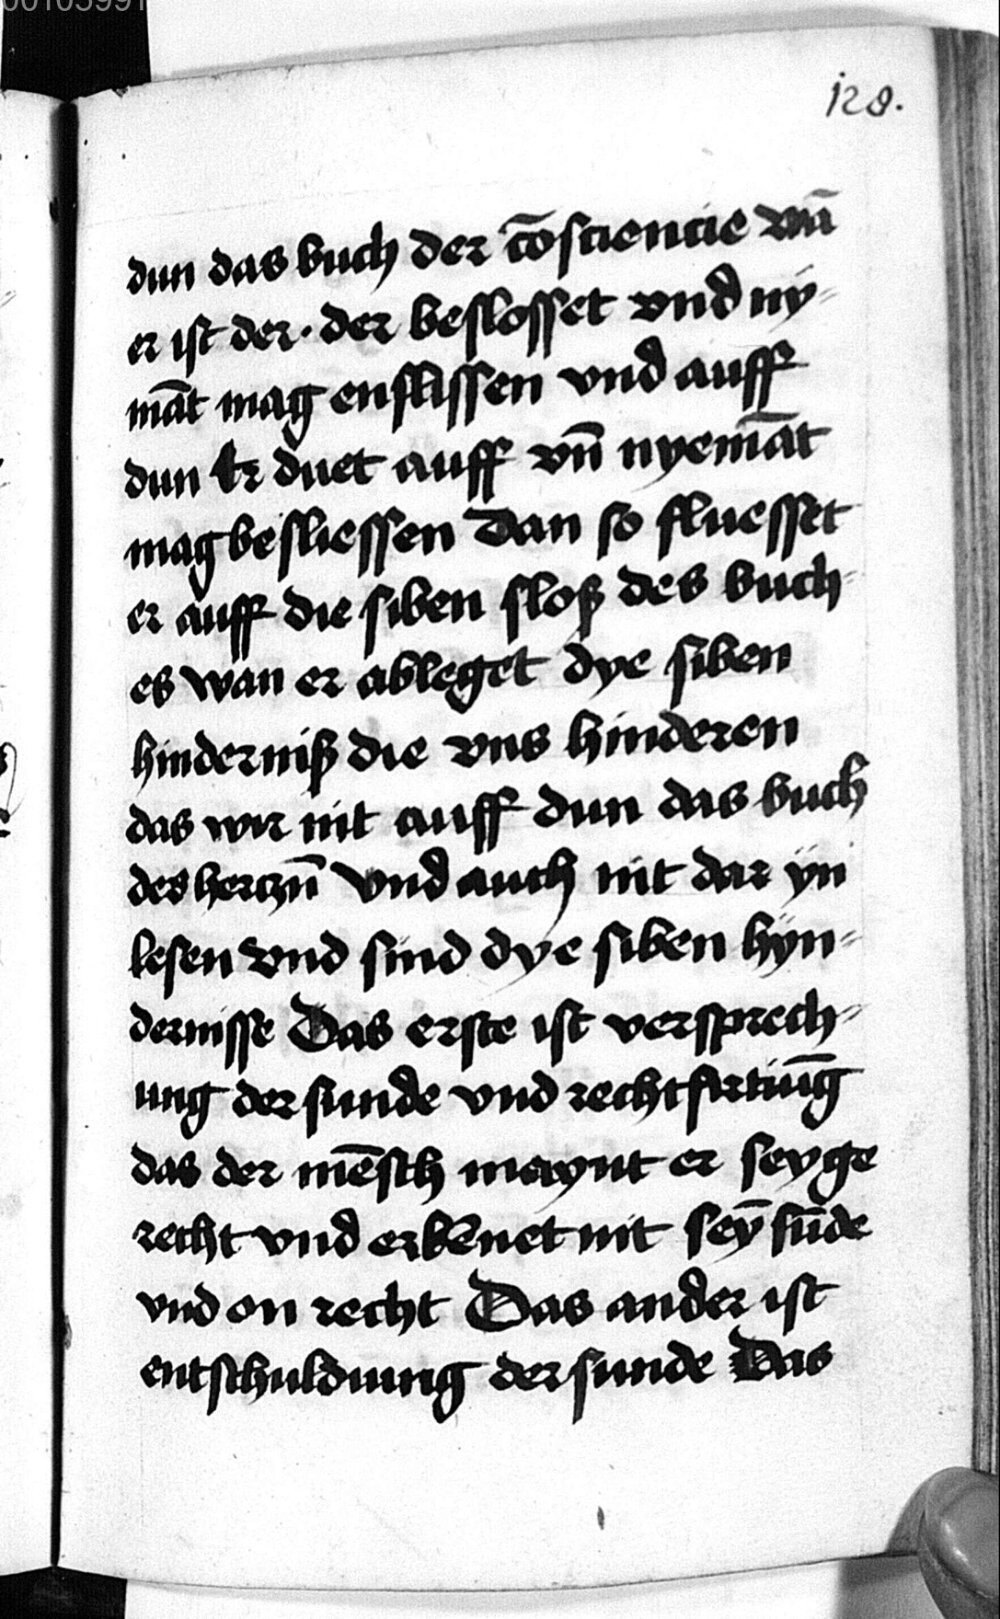 128.
dun das buch der cōsciencie vn̄
er ist der · der beslosset vnd ny-
māt mag enslissen vnd auff
dun Er duet auff vn̄ nyemāt
mag besliessen Dan so sluesset
er auff die siben sloß des buch-
es wan er ableget dye siben
hinderniß die vns hinderen
das wir nit auff dun das buch
des herczn̄ Vnd auch nit dar yn
lesen Vnd sind dye siben hyn-
dernisse Das erste ist versprech-
ung der sunde vnd rechtfirtiūg
das der mēsch maynt er seyge
recht vnd erkēnet nit seȳ sūde
vnd on recht Das ander ist
entschuldiung der sunde Das